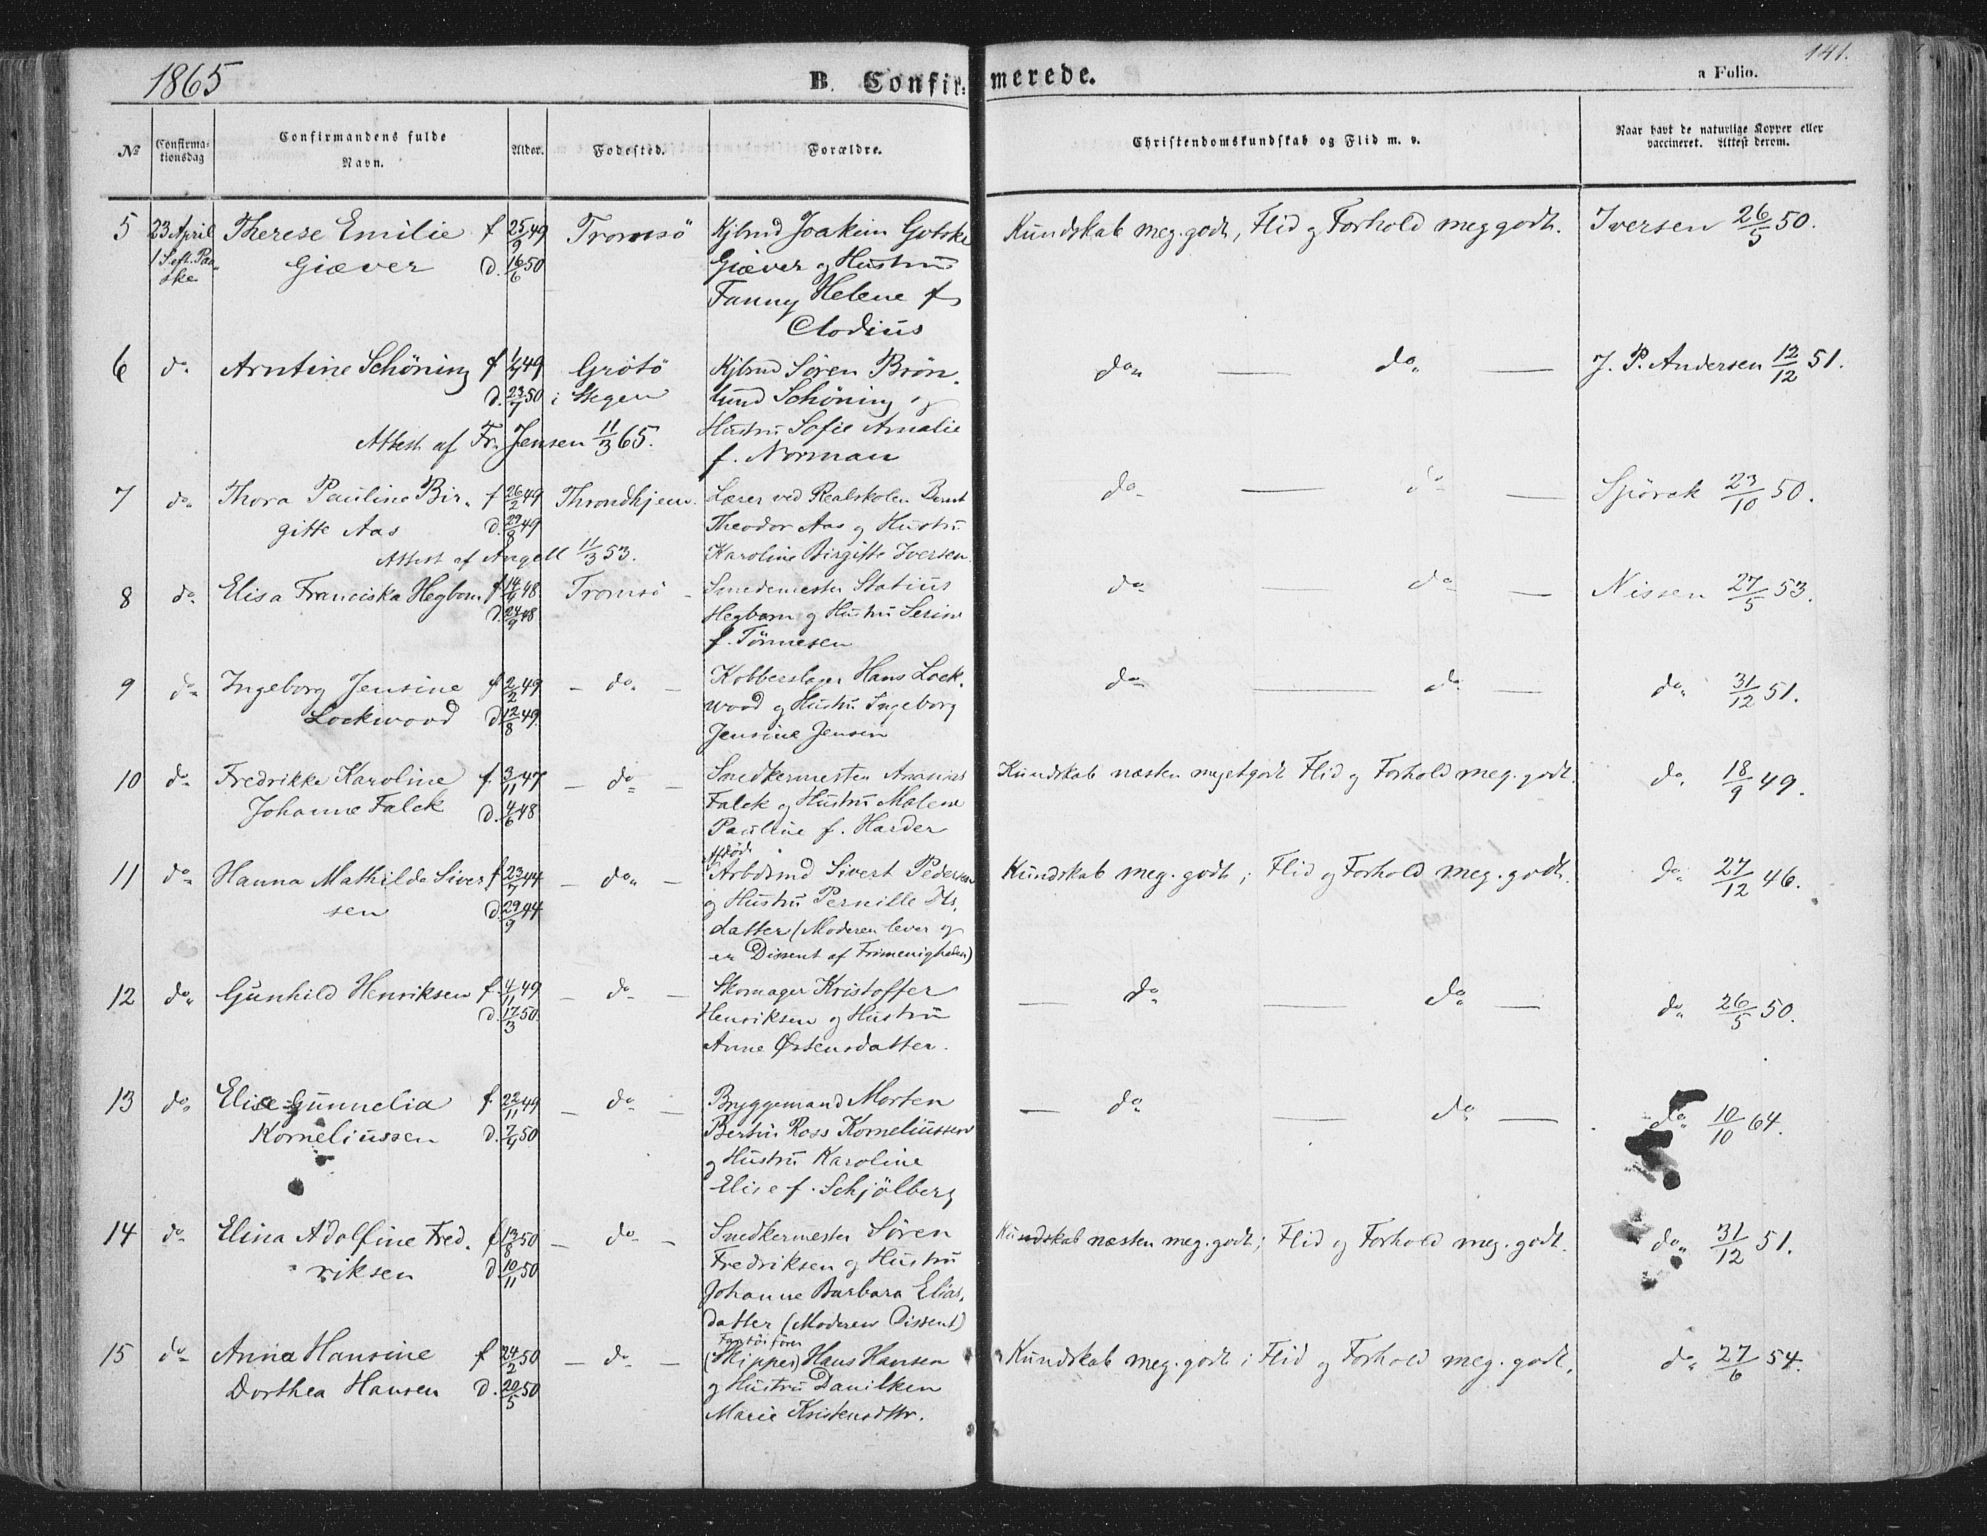 1865
B. Confir=merede.
141.
a Folio.
No
Confirma-
tionsdag
Confirmandens fulde
Navn.
Alder.
Fodested.
Forældre.
Christendomskundskab og Flid m. v.
Naar havt de naturlige Kopper eller
vaccineret. Attest derom.
5 23 April Therese Emilie f 25/9 49 Tromsö Kjbmd Joakim Gotske Kundskab meg. godt, Flid og Forhold meg godt. Iversen 26/5 50.
1 S. eft. Paa- Giæver d. 16/6 50 Giæver og Hustru
ske Fanny Helene f
Clodius
6 do Arntine Schöning f 1/4 49 Grötö Kjbmd Sören Brön- do — do — J. P. Andersen 12/12 51.
d. 23/7 50 i Stegen lund Schöning og
Attest af Fr. Jensen 11/3 65. Hustru Sofie Amalie
f. Norman
7 do Thora Pauline Bir- f 26/2 49 Throndhjem. Lærer ved Realskolen Bernt do — do — Spörck 23/10 50.
gitte Aas d. 22/8 49 Theodor Aas og Hustru
Attest af Angell 11/3 53. Karoline Birgitte Iversen
8 do Elisa Franciska Hegbom f 14/4 48 Tromsö - Smedemester Statius do — do — Nissen 27/5 53.
d. 24/9 48 Hegbom og Hustru Serine
f. Tönnesen
9 do Ingeborg Jensine f 2/2 49 - do - Kobberslager Hans Lock- do — do — do 31/12 51.
Lockwood d 12/8 49. wood og Hustru Ingeborg
Jensine Jensen
10 do Fredrikke Karoline f. 3/11 47 - do - Snedkermester Ananias Kundskab næsten meget godt Flid og Forhold meg. godt. do 18/9 49.
Johanne Falck d. 4/6 48 Falck og Hustru Malene
Pauline f. Harder
afdöd
11 do Hanna Mathilde Siver f 23/7 44 - do - Arbdsmd Sivert Pedersen Kundskab meg. godt; Flid og Forhold meg. godt. do 27/12 46.
sen d 29/9 44 og Hustru Pernille Ols-
datter (Moderen lever og
er Dissent af Frimenigheden)
12 do Gunhild Henriksen f. 4/11 49 - do - Skomager Kristoffer — do — do — do 26/5 50.
d. 17/3 50. Henriksen og Hustru
Anne Östensdatter.
13 do Elise Gunnelia f. 22/11 49 - do - Bryggemand Morten — do — do — do 10/10 64.
Korneliussen d. 7/4 50 Bertin Ross Korneliussen
og Hustru Karoline
Elise f. Schjölberg
14 do Elina Adolfine Fred- f 13/8 50 - do - Snedkermester Sören Kundskab næsten meg. godt; Flid og Forhold meg. godt. do 31/12 51.
riksen d 10/11 50 Fredriksen og Hustru
Johanne Barbara Elias-
datter (Moderen Dissent)
Fartöiförer
15 do Anna Hansine f 24/2 50 - do - (Skipper) Hans Hansen Kundskab meg. godt; Flid og Forhold meg. godt. do 27/6 54.
Dorthea Hansen d. 20/5 50 og Hustru Danilken
Marie Kristensdttr.